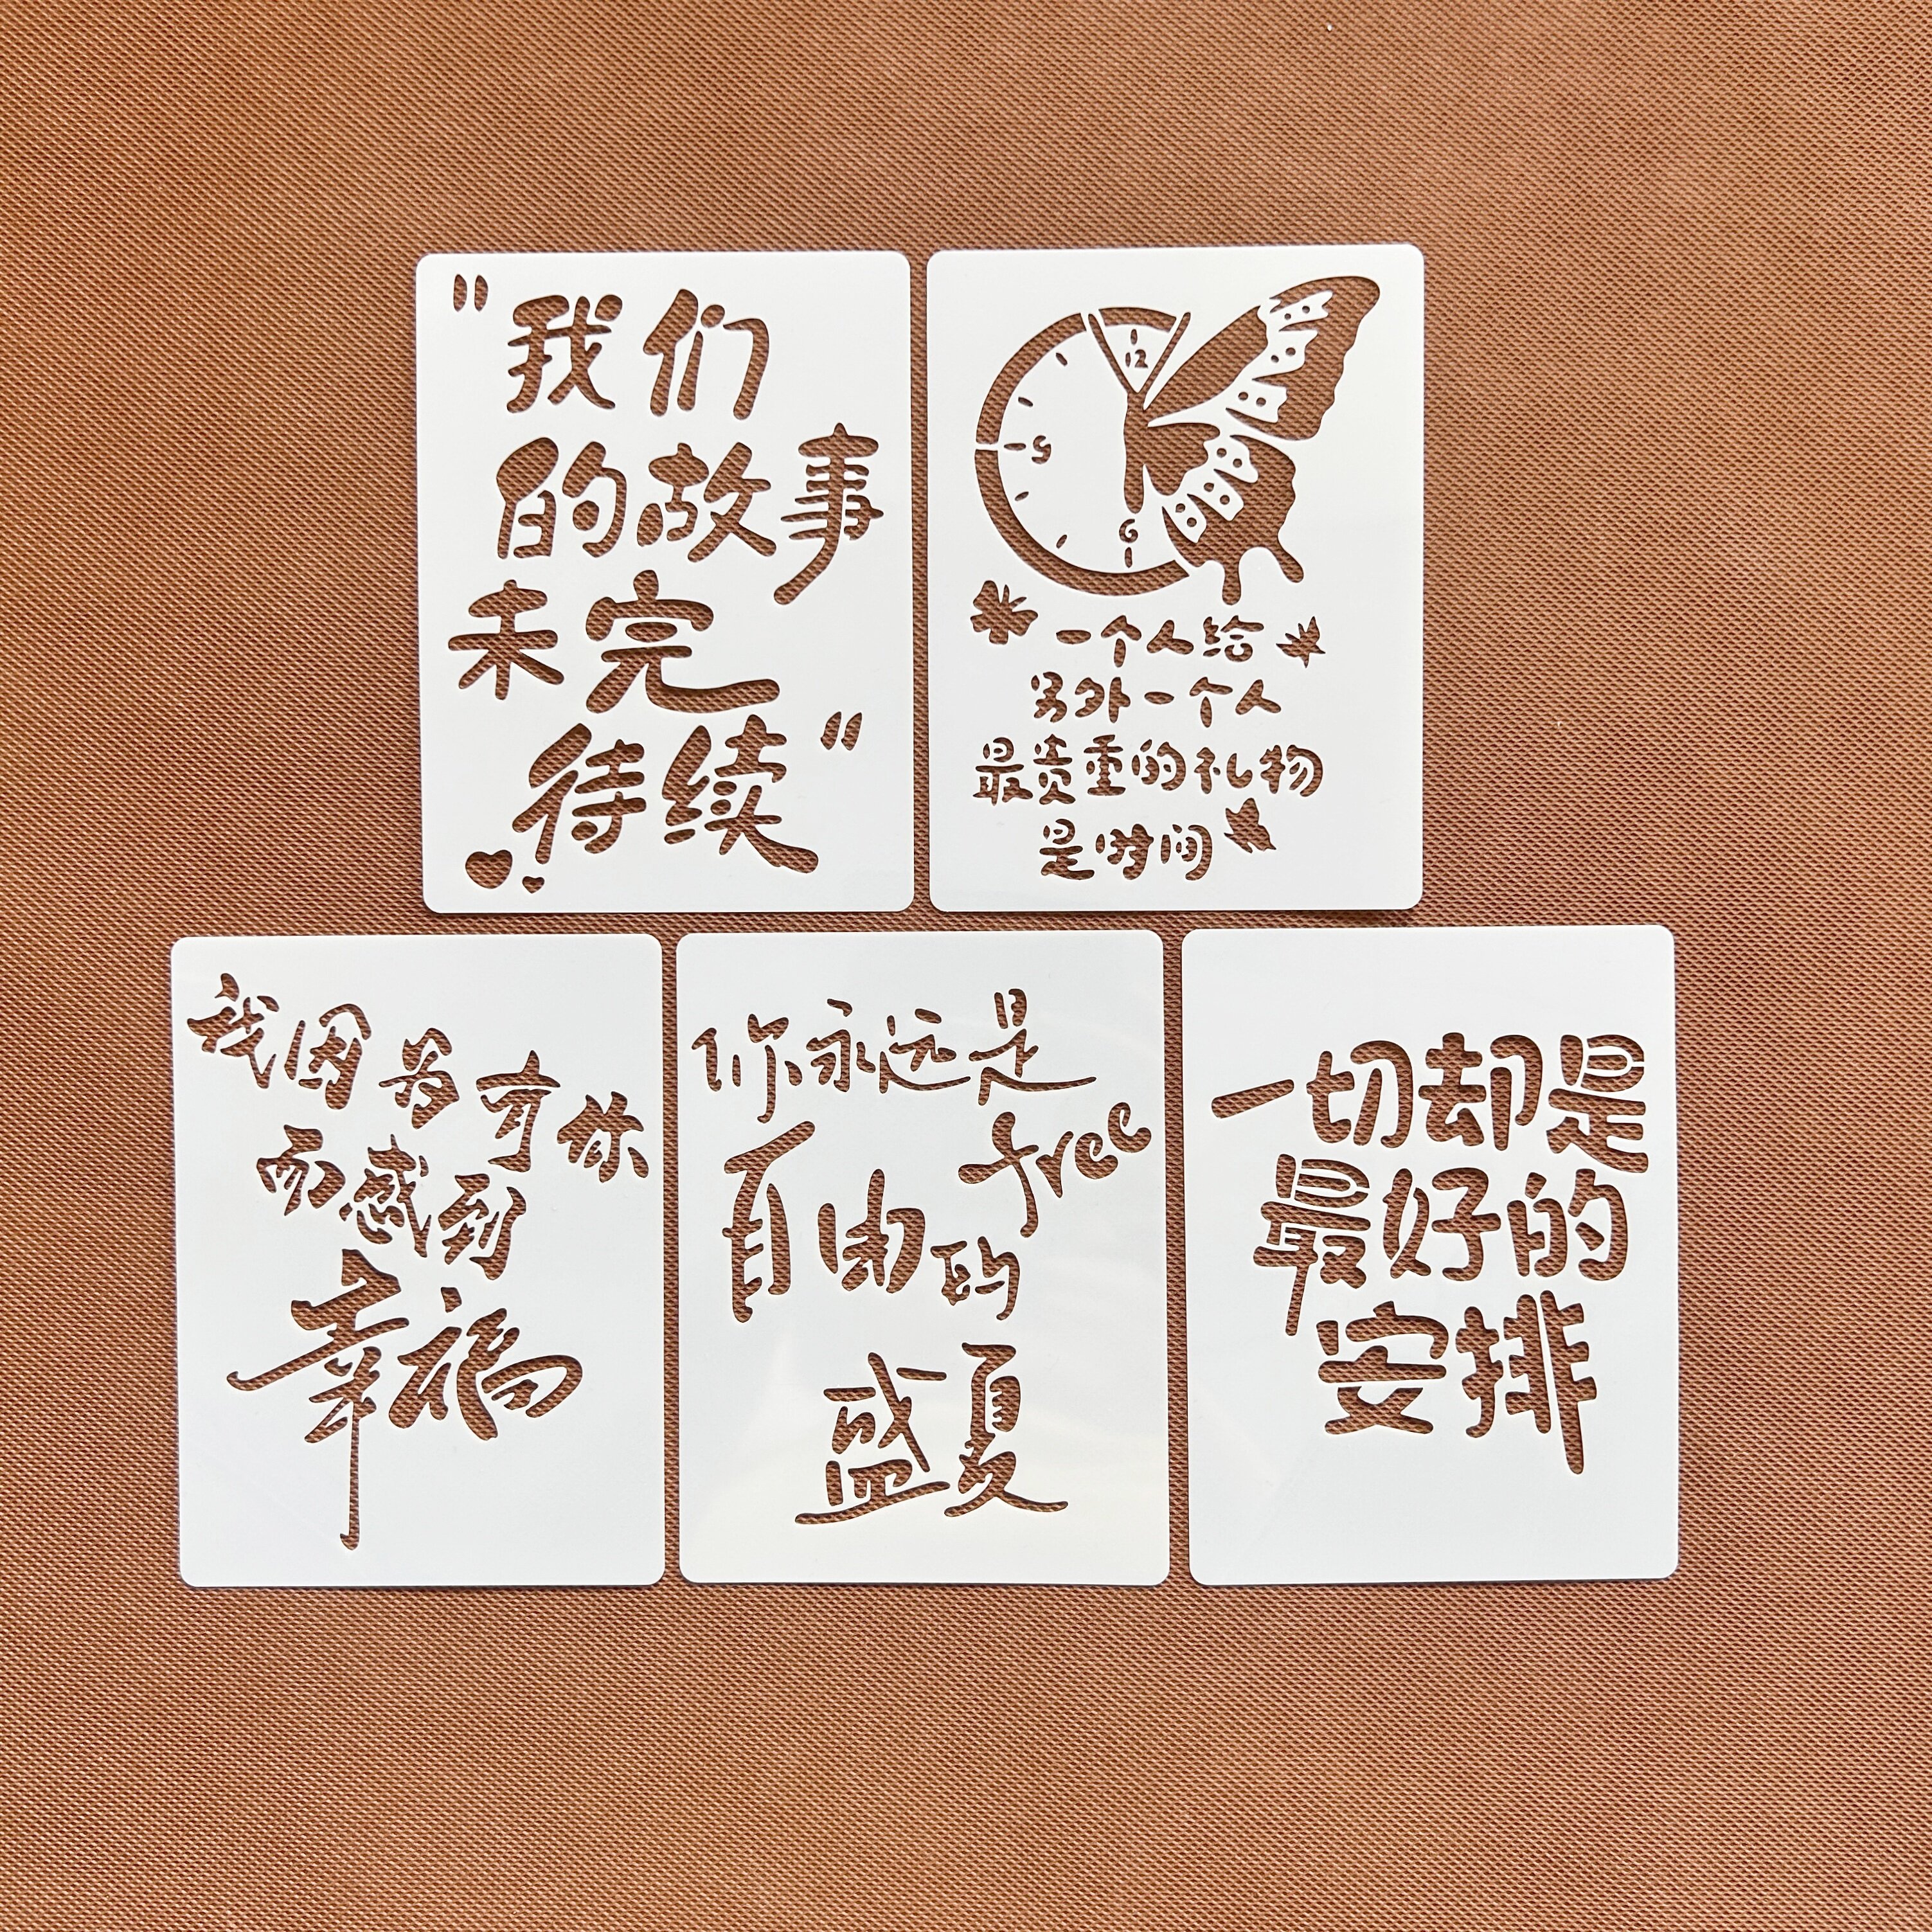 "我们
的故事
未完
待续"
12
9
6
一个人给
另外一个人
最贵重的礼物
是时间
我因为有你
而感到
幸福
你永远是
free
自由的
盛夏
一切却是
最好的
安排